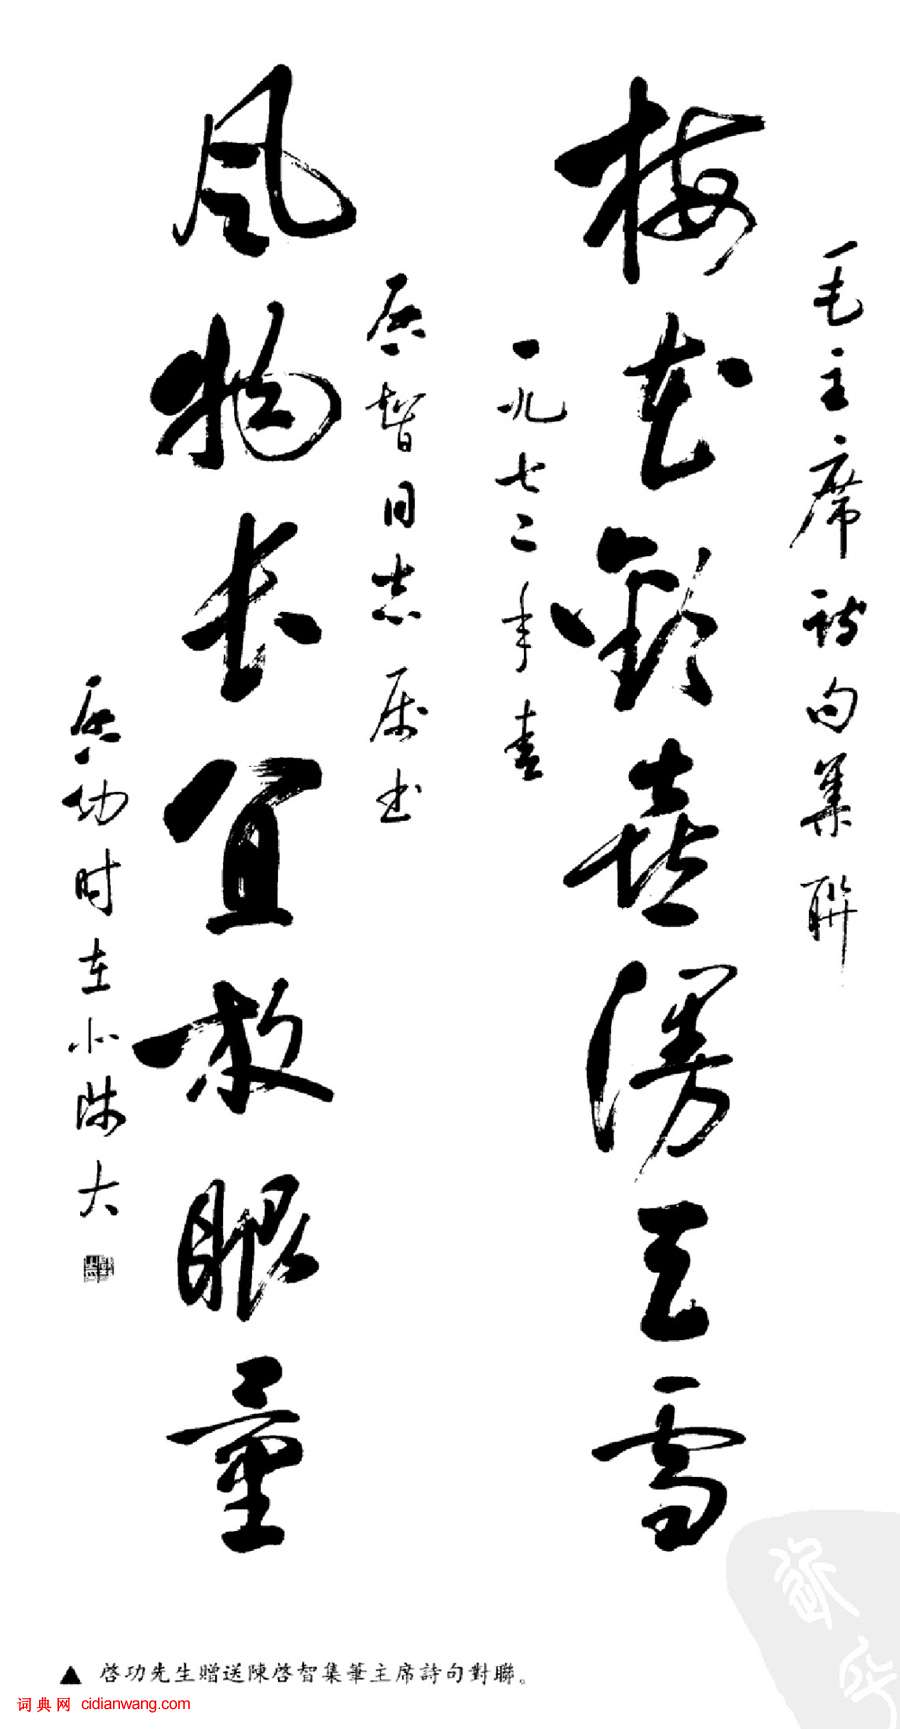 毛主席诗句集聯
梅花歡喜漫天雪
一九七二年春
启智同志属书
风物长宜放眼量
启功时在北师大
▲ 啓功先生贈送陳啓智集筆主席詩句對聯。
词典网 cidianwang.com